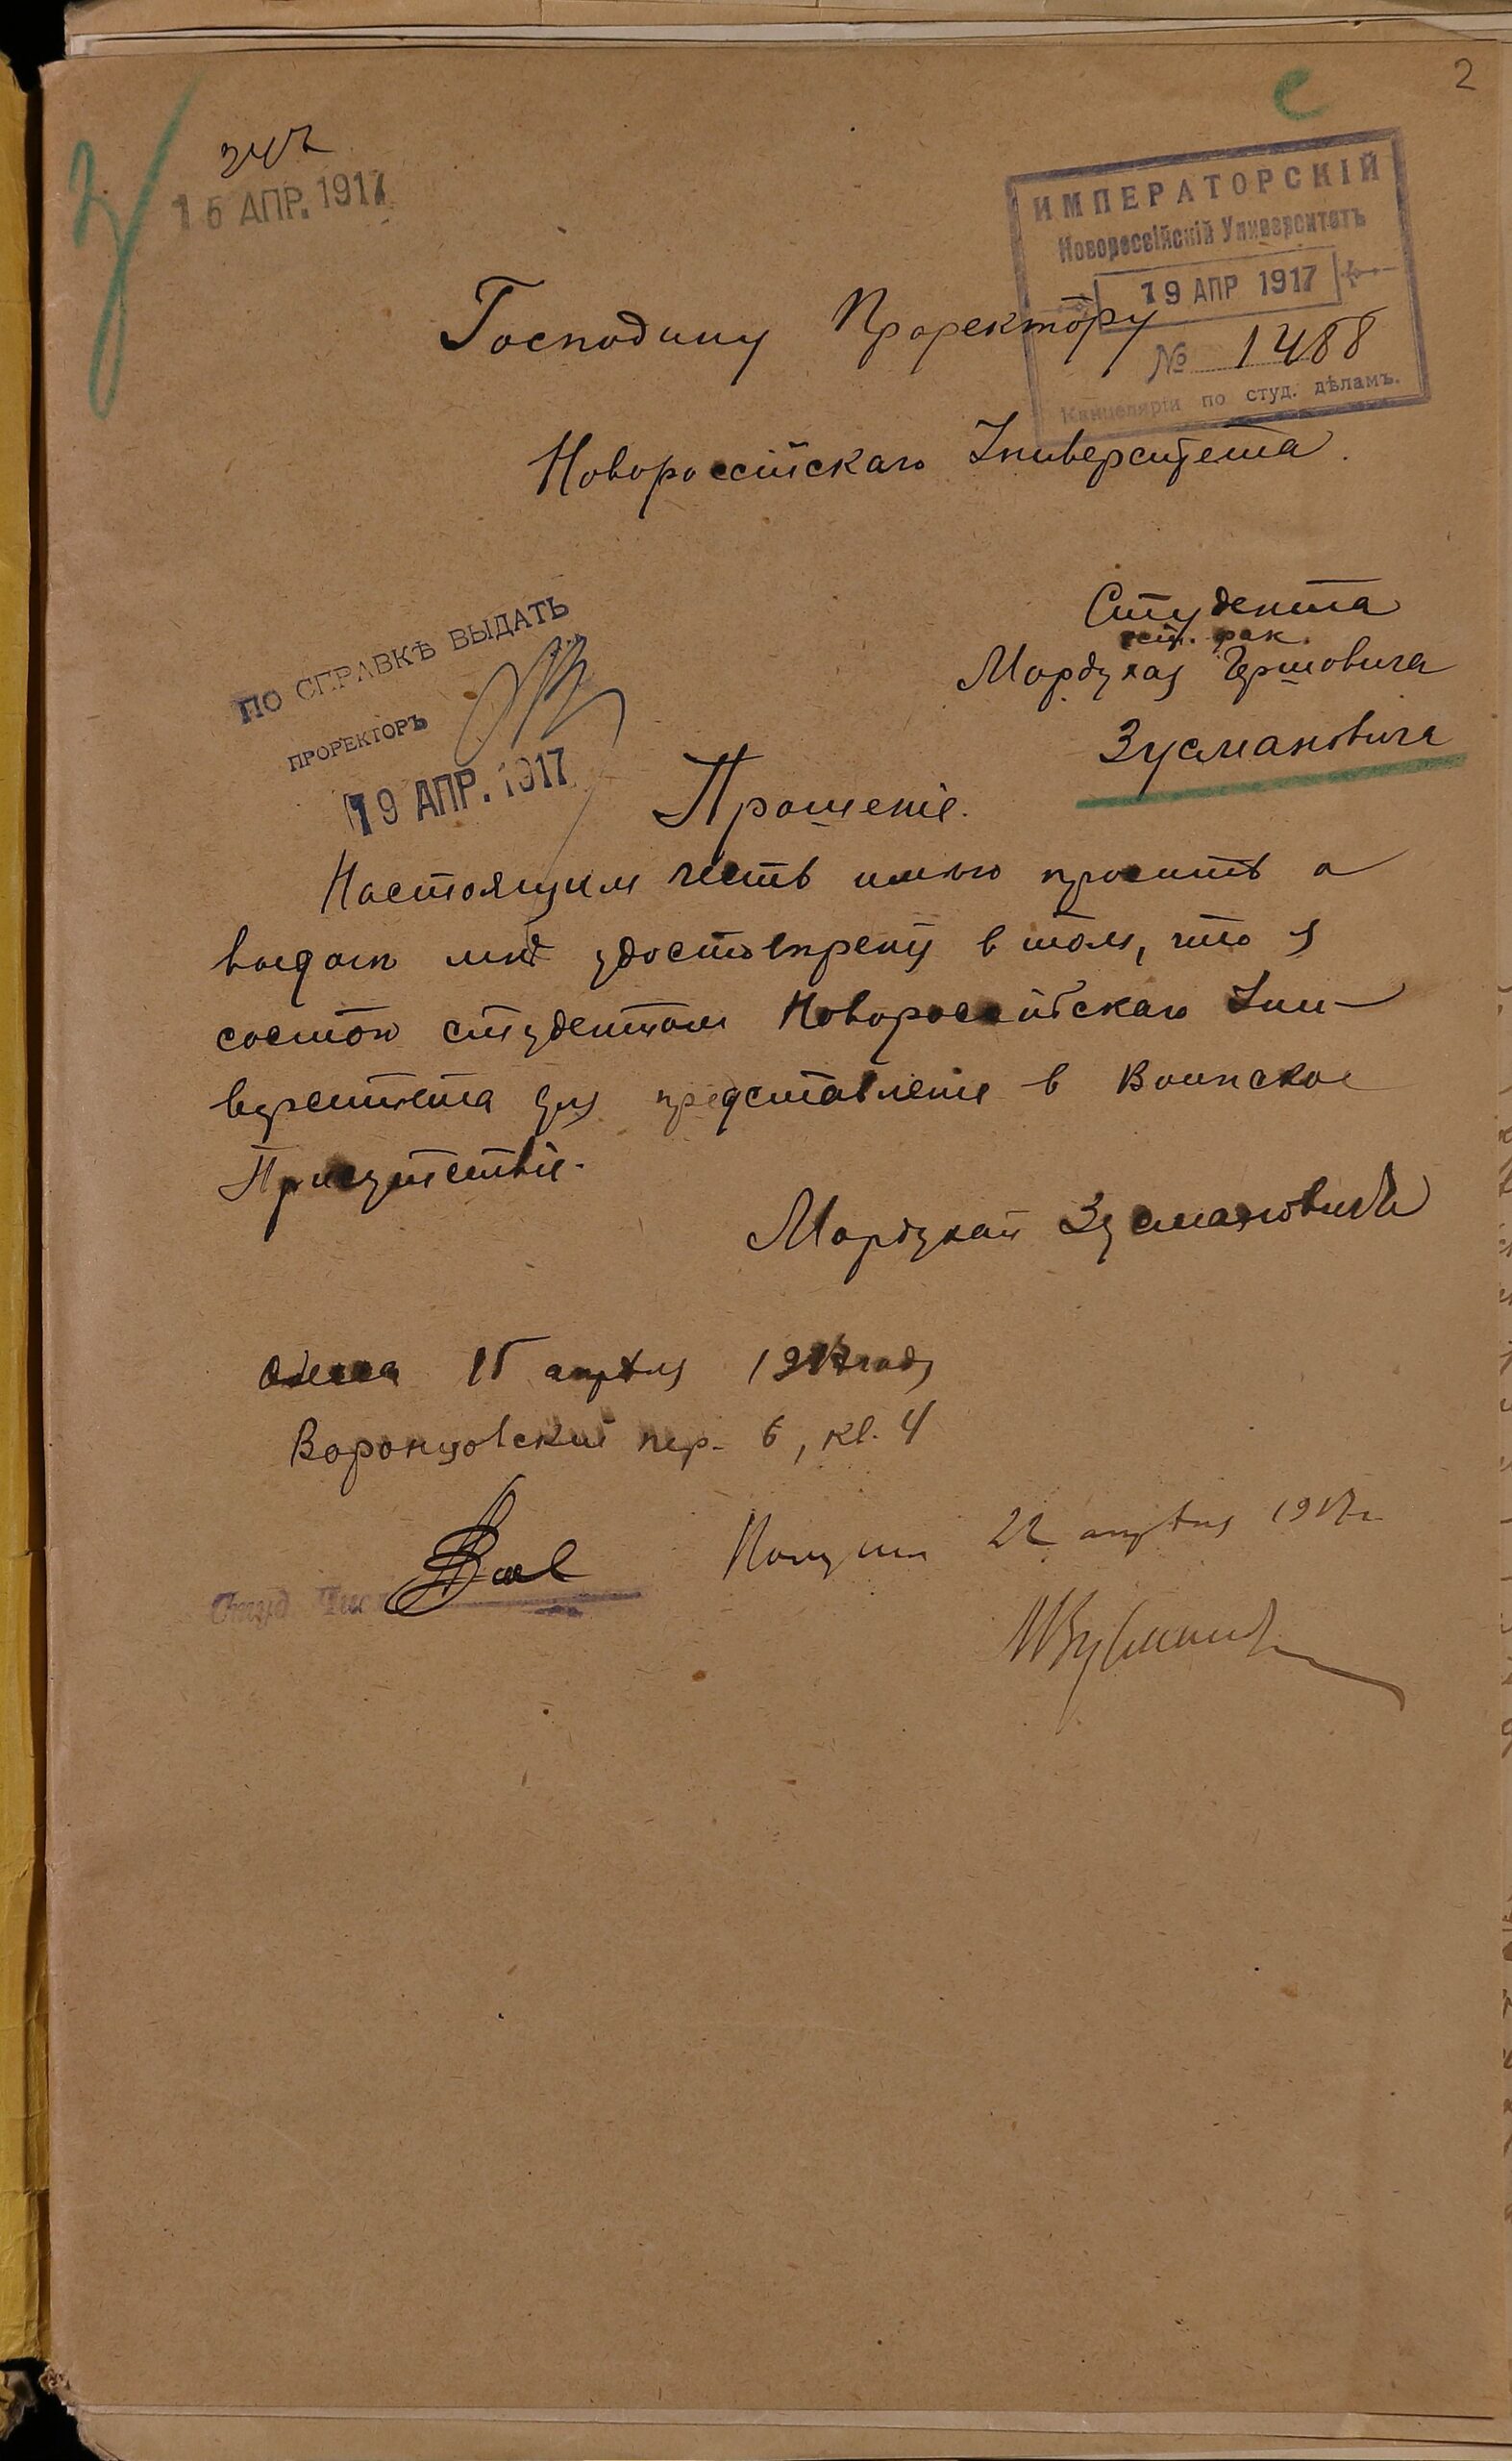 2
347
16 АПР. 1917
ИМПЕРАТОРСКІЙ
Новороссійскій Университетъ
19 АПР 1917
№ 1488
Канцелярія по студ. дѣламъ.
Господину Проректору
Новороссійскаго Университета.
Студента
ист. фак.
Мордухая Гершовича
Зусмановича
ПО СПРАВКѢ ВЫДАТЬ
ПРОРЕКТОРЪ
19 АПР. 1917
Прошеніе.
Настоящим честь имѣю просить о
выдачи мнѣ удостовѣренія в том, что я
состою студентом Новороссійскаго Уни-
верситета для представленія в Воинское
Присутствіе.
Мордухай Зусманович
Одесса 15 апрѣля 1917 года
Воронцовскій пер. 6, кв. 4
Получил 22 апрѣля 1917 г.
Студ.
МЗусманович